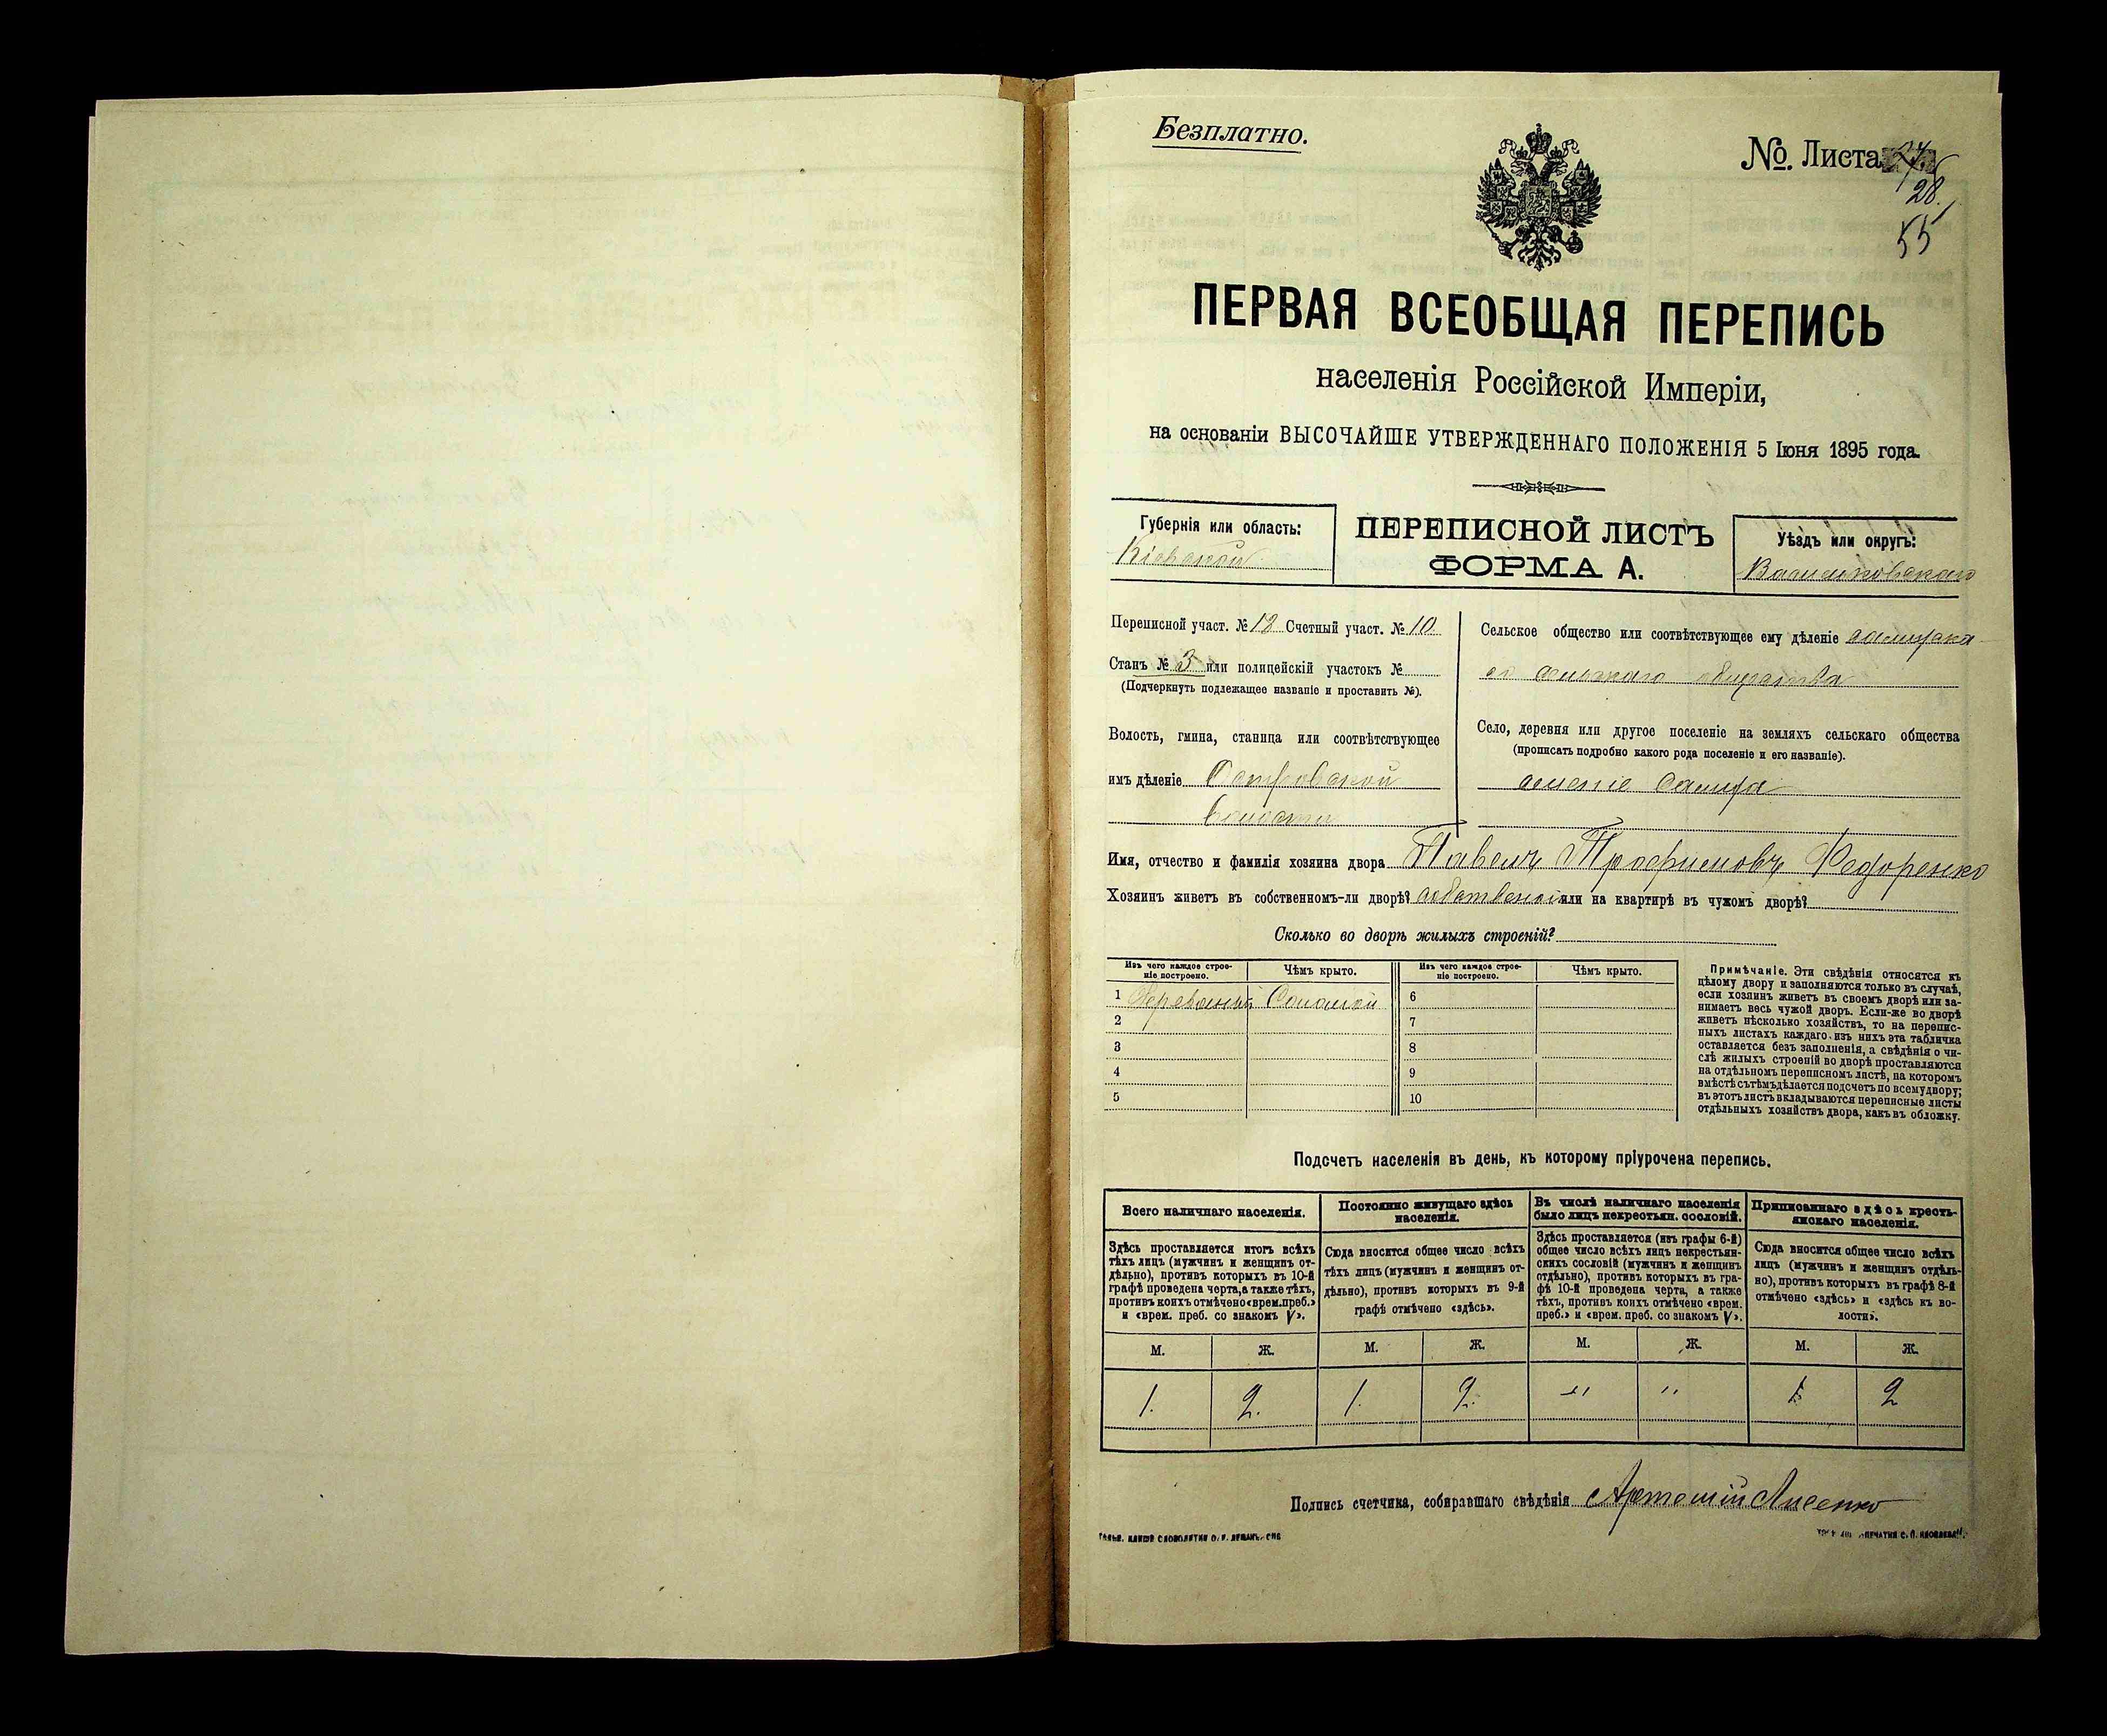 Безплатно.
№. Листа
28.
55
ПЕРВАЯ ВСЕОБЩАЯ ПЕРЕПИСЬ
населенія Россійской Имперіи,
на основаніи ВЫСОЧАЙШЕ УТВЕРЖДЕННАГО ПОЛОЖЕНІЯ 5 Іюня 1895 года.
Губернія или область:
Кіевской
ПЕРЕПИСНОЙ ЛИСТЪ
ФОРМА А.
Уѣздъ или округъ:
Васильковскаго
Переписной участ. № 12 Счетный участ. № 10
Станъ № 3 или полицейскій участокъ №
(Подчеркнуть подлежащее названіе и проставить №).
Волость, гмина, станица или соотвѣтствующее
имъ дѣленіе
волости
Сельское общество или соотвѣтствующее ему дѣленіе
сельскаго общества
Село, деревня или другое поселеніе на земляхъ сельскаго общества
(прописать подробно какого рода поселеніе и его названіе).
Имя, отчество и фамилія хозяина двора Павелъ Трофимовъ Федоренко
Хозяинъ живетъ въ собственномъ-ли дворѣ? или на квартирѣ въ чужомъ дворѣ?
Сколько во дворѣ жилыхъ строеній?
Изъ чего каждое строе-
ніе построено.
Чѣмъ крыто.
Изъ чего каждое строе-
ніе построено.
Чѣмъ крыто.
1 Соломой 6
2 7
3 8
4 9
5 10
Примѣчаніе. Эти свѣдѣнія относятся къ
цѣлому двору и заполняются только въ случаѣ,
если хозяинъ живетъ въ своемъ дворѣ или за-
нимаетъ весь чужой дворъ. Если-же во дворѣ
живетъ нѣсколько хозяйствъ, то на перепис-
ныхъ листахъ каждаго изъ нихъ эта табличка
оставляется безъ заполненія, а свѣдѣнія о чи-
слѣ жилыхъ строеній во дворѣ проставляются
на отдѣльномъ переписномъ листѣ, на которомъ
вмѣстѣ съ тѣмъ дѣлается подсчетъ по всему двору;
въ этотъ листъ вкладываются переписные листы
отдѣльныхъ хозяйствъ двора, какъ въ обложку.
Подсчетъ населенія въ день, къ которому пріурочена перепись.
Всего наличнаго населенія.
Здѣсь проставляется итогъ всѣхъ
тѣхъ лицъ (мужчинъ и женщинъ от-
дѣльно), противъ которыхъ въ 10-й
графѣ проведена черта, а также тѣхъ,
противъ коихъ отмѣчено «врем. преб.»
и «врем. преб. со знакомъ V».
Постоянно живущаго здѣсь
населенія.
Сюда вносится общее число всѣхъ
тѣхъ лицъ (мужчинъ и женщинъ от-
дѣльно), противъ которыхъ въ 9-й
графѣ отмѣчено «здѣсь».
Въ числѣ наличнаго населенія
было лицъ некрестьян. сословій.
Здѣсь проставляется (изъ графы 6-й)
общее число всѣхъ лицъ некрестьян-
скихъ сословій (мужчинъ и женщинъ
отдѣльно), противъ которыхъ въ гра-
фѣ 10-й проведена черта, а также
тѣхъ, противъ коихъ отмѣчено «врем.
преб.» и «врем. преб. со знакомъ V».
Приписаннаго здѣсь кресть-
янскаго населенія.
Сюда вносится общее число всѣхъ
лицъ (мужчинъ и женщинъ отдѣль-
но), противъ которыхъ въ графѣ 8-й
отмѣчено «здѣсь» и «здѣсь къ во-
лости».
М. Ж. М. Ж. М. Ж. М. Ж.
1. 2. 1. 2. " " 1 2
Подпись счетчика, собиравшаго свѣдѣнія Артемій Лисенко